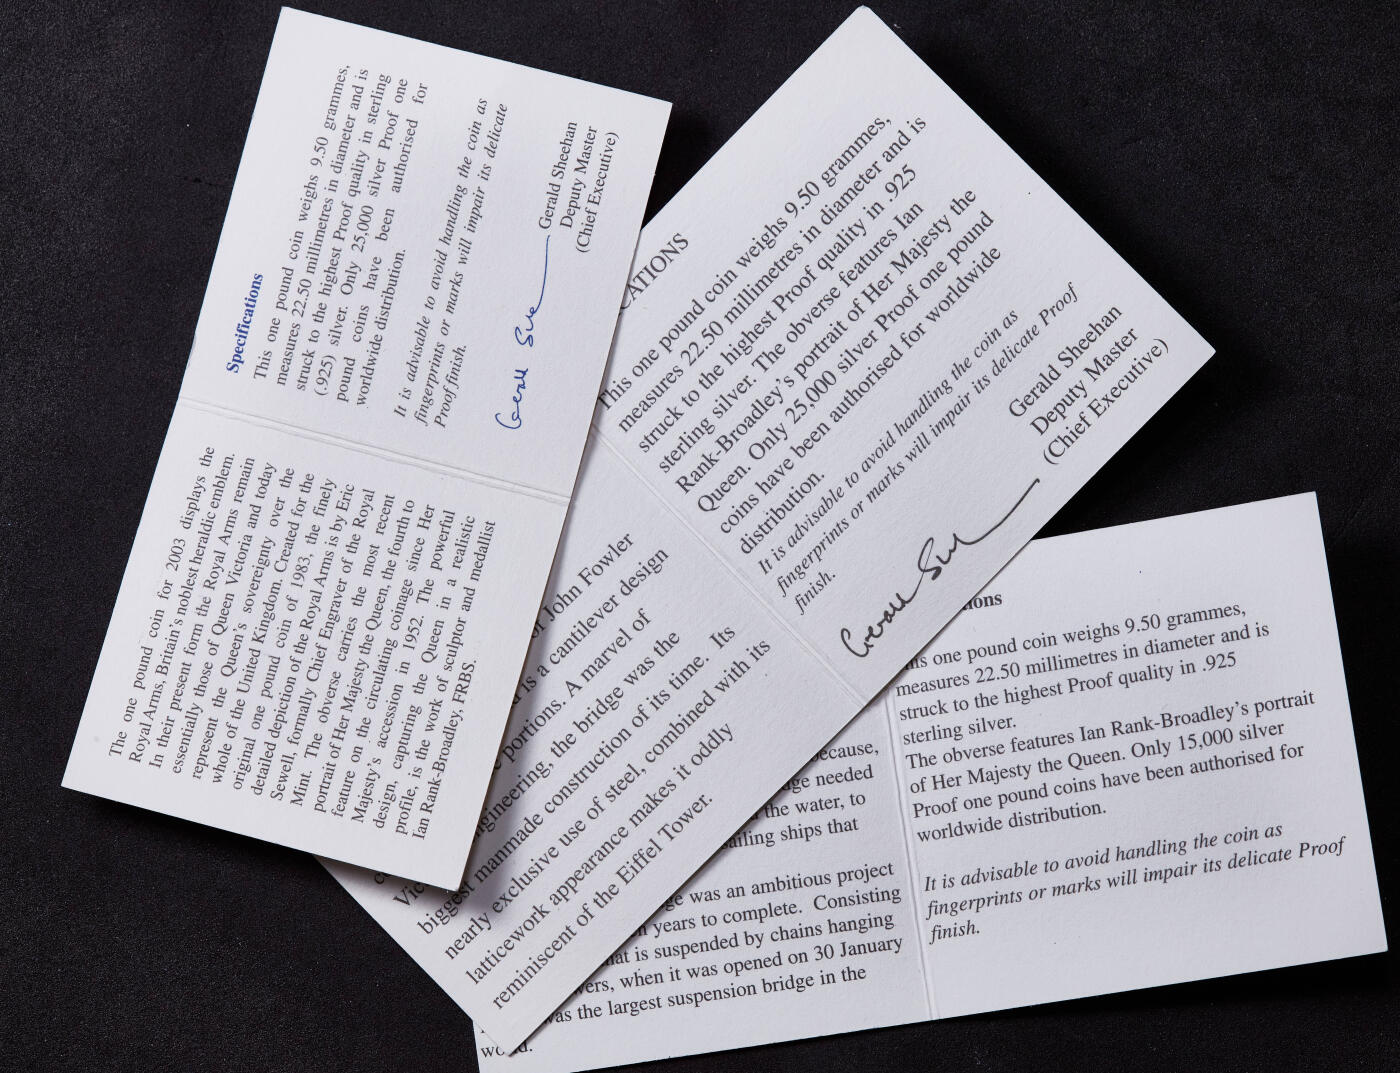 Specifications
This one pound coin weighs 9.50 grammes,
measures 22.50 millimetres in diameter and is
struck to the highest Proof quality in sterling
(.925) silver. Only 25,000 silver Proof one
pound coins have been authorised for
worldwide distribution.
It is advisable to avoid handling the coin as
fingerprints or marks will impair its delicate
Proof finish.
Gerald Sheehan
Deputy Master
(Chief Executive)
The one pound coin for 2003 displays the
Royal Arms, Britain's noblest heraldic emblem.
In their present form the Royal Arms remain
essentially those of Queen Victoria and today
represent the Queen's sovereignty over the
whole of the United Kingdom. Created for the
original one pound coin of 1983, the finely
detailed depiction of the Royal Arms is by Eric
Sewell, formally Chief Engraver of the Royal
Mint. The obverse carries the most recent
portrait of Her Majesty the Queen, the fourth to
feature on the circulating coinage since Her
Majesty's accession in 1952. The powerful
design, capturing the Queen in a realistic
profile, is the work of sculptor and medallist
Ian Rank-Broadley, FRBS.
CATIONS
This one pound coin weighs 9.50 grammes,
measures 22.50 millimetres in diameter and is
struck to the highest Proof quality in .925
sterling silver. The obverse features Ian
Rank-Broadley's portrait of Her Majesty the
Queen. Only 25,000 silver Proof one pound
coins have been authorised for worldwide
distribution.
It is advisable to avoid handling the coin as
fingerprints or marks will impair its delicate Proof
finish.
Gerald Sheehan
Deputy Master
(Chief Executive)
John Fowler
is a cantilever design
portions. A marvel of
gineering, the bridge was the
biggest manmade construction of its time. Its
nearly exclusive use of steel, combined with its
latticework appearance makes it oddly
reminiscent of the Eiffel Tower.
ions
one pound coin weighs 9.50 grammes,
measures 22.50 millimetres in diameter and is
struck to the highest Proof quality in .925
sterling silver.
The obverse features Ian Rank-Broadley's portrait
of Her Majesty the Queen. Only 15,000 silver
Proof one pound coins have been authorised for
worldwide distribution.
It is advisable to avoid handling the coin as
fingerprints or marks will impair its delicate Proof
finish.
ecause,
needed
the water, to
sailing ships that
was an ambitious project
years to complete. Consisting
is suspended by chains hanging
when it was opened on 30 January
was the largest suspension bridge in the